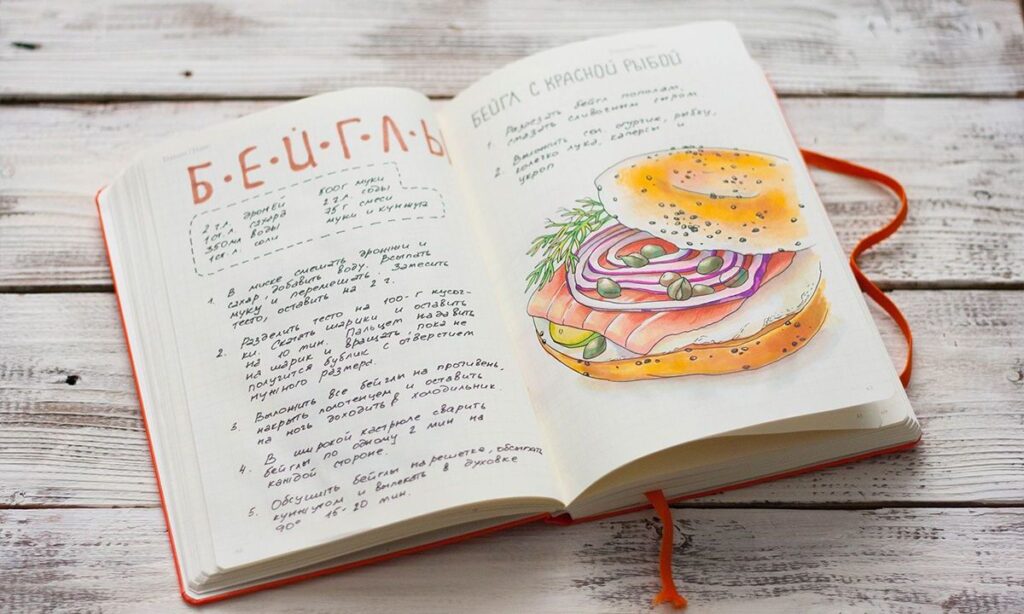 Б·Е·Й·Г·Л·Ы
2 ч.л. дрожжей
1 ст.л. сахара
350 мл воды
1 ст.л. соли
500 г муки
2 ч.л. соды
75 г смеси
муки и кунжута
1. В миске смешать дрожжи и
сахар, добавить воду. Всыпать
муку и перемешать. Замесить
тесто, оставить на 2 ч.
2. Разделить тесто на 100-г кусоч-
ки. Скатать шарики и оставить
на 10 мин. Пальцем надавить
на шарик и вращать, пока не
получится бублик с отверстием
нужного размера.
3. Выложить все бейглы на противень,
накрыть полотенцем и оставить
на ночь доходить в холодильник.
4. В широкой кастрюле сварить
бейглы по одному 2 мин на
каждой стороне.
5. Обсушить бейглы на решетке, обсыпать
кунжутом и выпекать в духовке
90° 15-20 мин.
БЕЙГЛ С КРАСНОЙ РЫБОЙ
1. Разрезать бейгл пополам,
смазать сливочным сыром
2. Выложить сол. огурчик, рыбку,
колечко лука, каперсы и
укроп